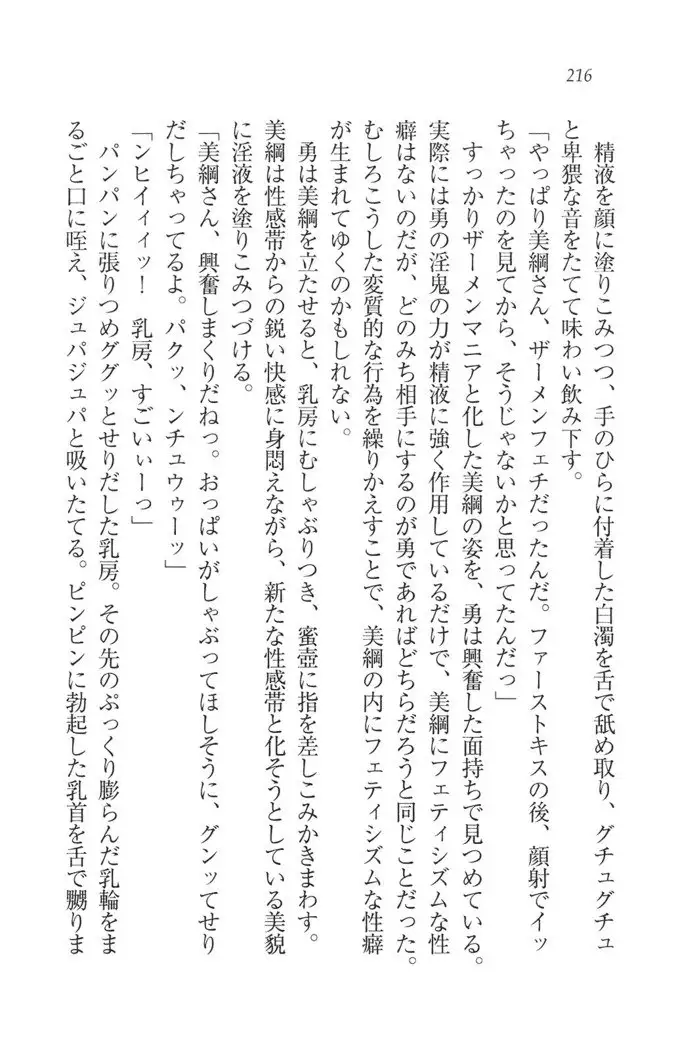 216
精液を顔に塗りこみつつ、手のひらに付着した白濁を舌で舐め取り、グチュグチュ
と卑猥な音をたてて味わい飲み下す。
「やっぱり美綱さん、ザーメンフェチだったんだ。ファーストキスの後、顔射でイッ
ちゃったのを見てから、そうじゃないかと思ってたんだっ」
すっかりザーメンマニアと化した美綱の姿を、勇は興奮した面持ちで見つめている。
実際には勇の淫鬼の力が精液に強く作用しているだけで、美綱にフェティシズムな性
癖はないのだが、どのみち相手にするのが勇であればどちらだろうと同じことだった。
むしろこうした変質的な行為を繰りかえすことで、美綱の内にフェティシズムな性癖
が生まれてゆくのかもしれない。
勇は美綱を立たせると、乳房にむしゃぶりつき、蜜壺に指を差しこみかきまわす。
美綱は性感帯からの鋭い快感に身悶えながら、新たな性感帯と化そうとしている美貌
に淫液を塗りこみつづける。
「美綱さん、興奮しまくりだねっ。おっぱいがしゃぶってほしそうに、グンッてせり
だしちゃってるよ。パクッ、ンチュウゥーッ」
「ンヒイィィッ！　乳房、すごいぃーっ」
パンパンに張りつめググッとせりだした乳房。その先のぷっくり膨らんだ乳輪をま
るごと口に咥え、ジュパジュパと吸いたてる。ピンピンに勃起した乳首を舌で嬲りま